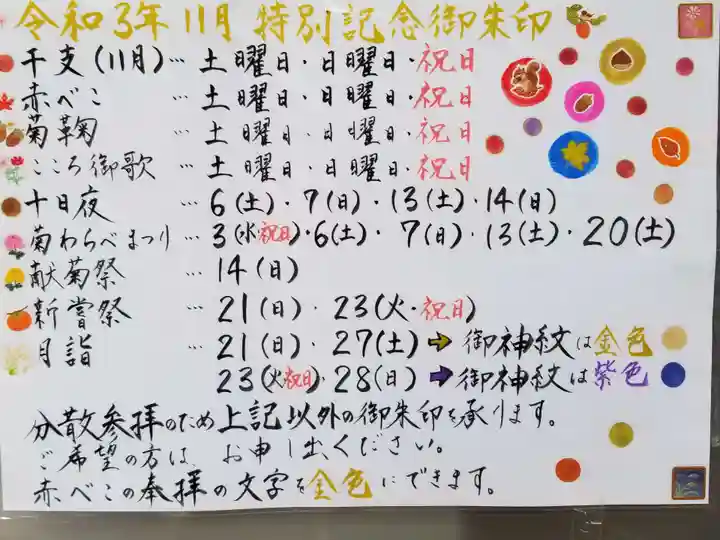 令和3年11月 特別記念御朱印
干支(11月)… 土曜日・日曜日・祝日
赤べこ … 土曜日・日曜日・祝日
菊鞠 … 土曜日・日曜日・祝日
こころ御歌 … 土曜日・日曜日・祝日
十日夜 … 6(土)・7(日)・13(土)・14(日)
菊わらべまつり … 3(水・祝日)・6(土)・7(日)・13(土)・20(土)
献菊祭 … 14(日)
新嘗祭 … 21(日)・23(火・祝日)
月詣 … 21(日)・27(土)➡御神紋は金色
23(火・祝日)・28(日)➡御神紋は紫色
分散参拝のため上記以外の御朱印を承ります。
ご希望の方は お申し出ください。
赤べこの奉拝の文字を金色にできます。